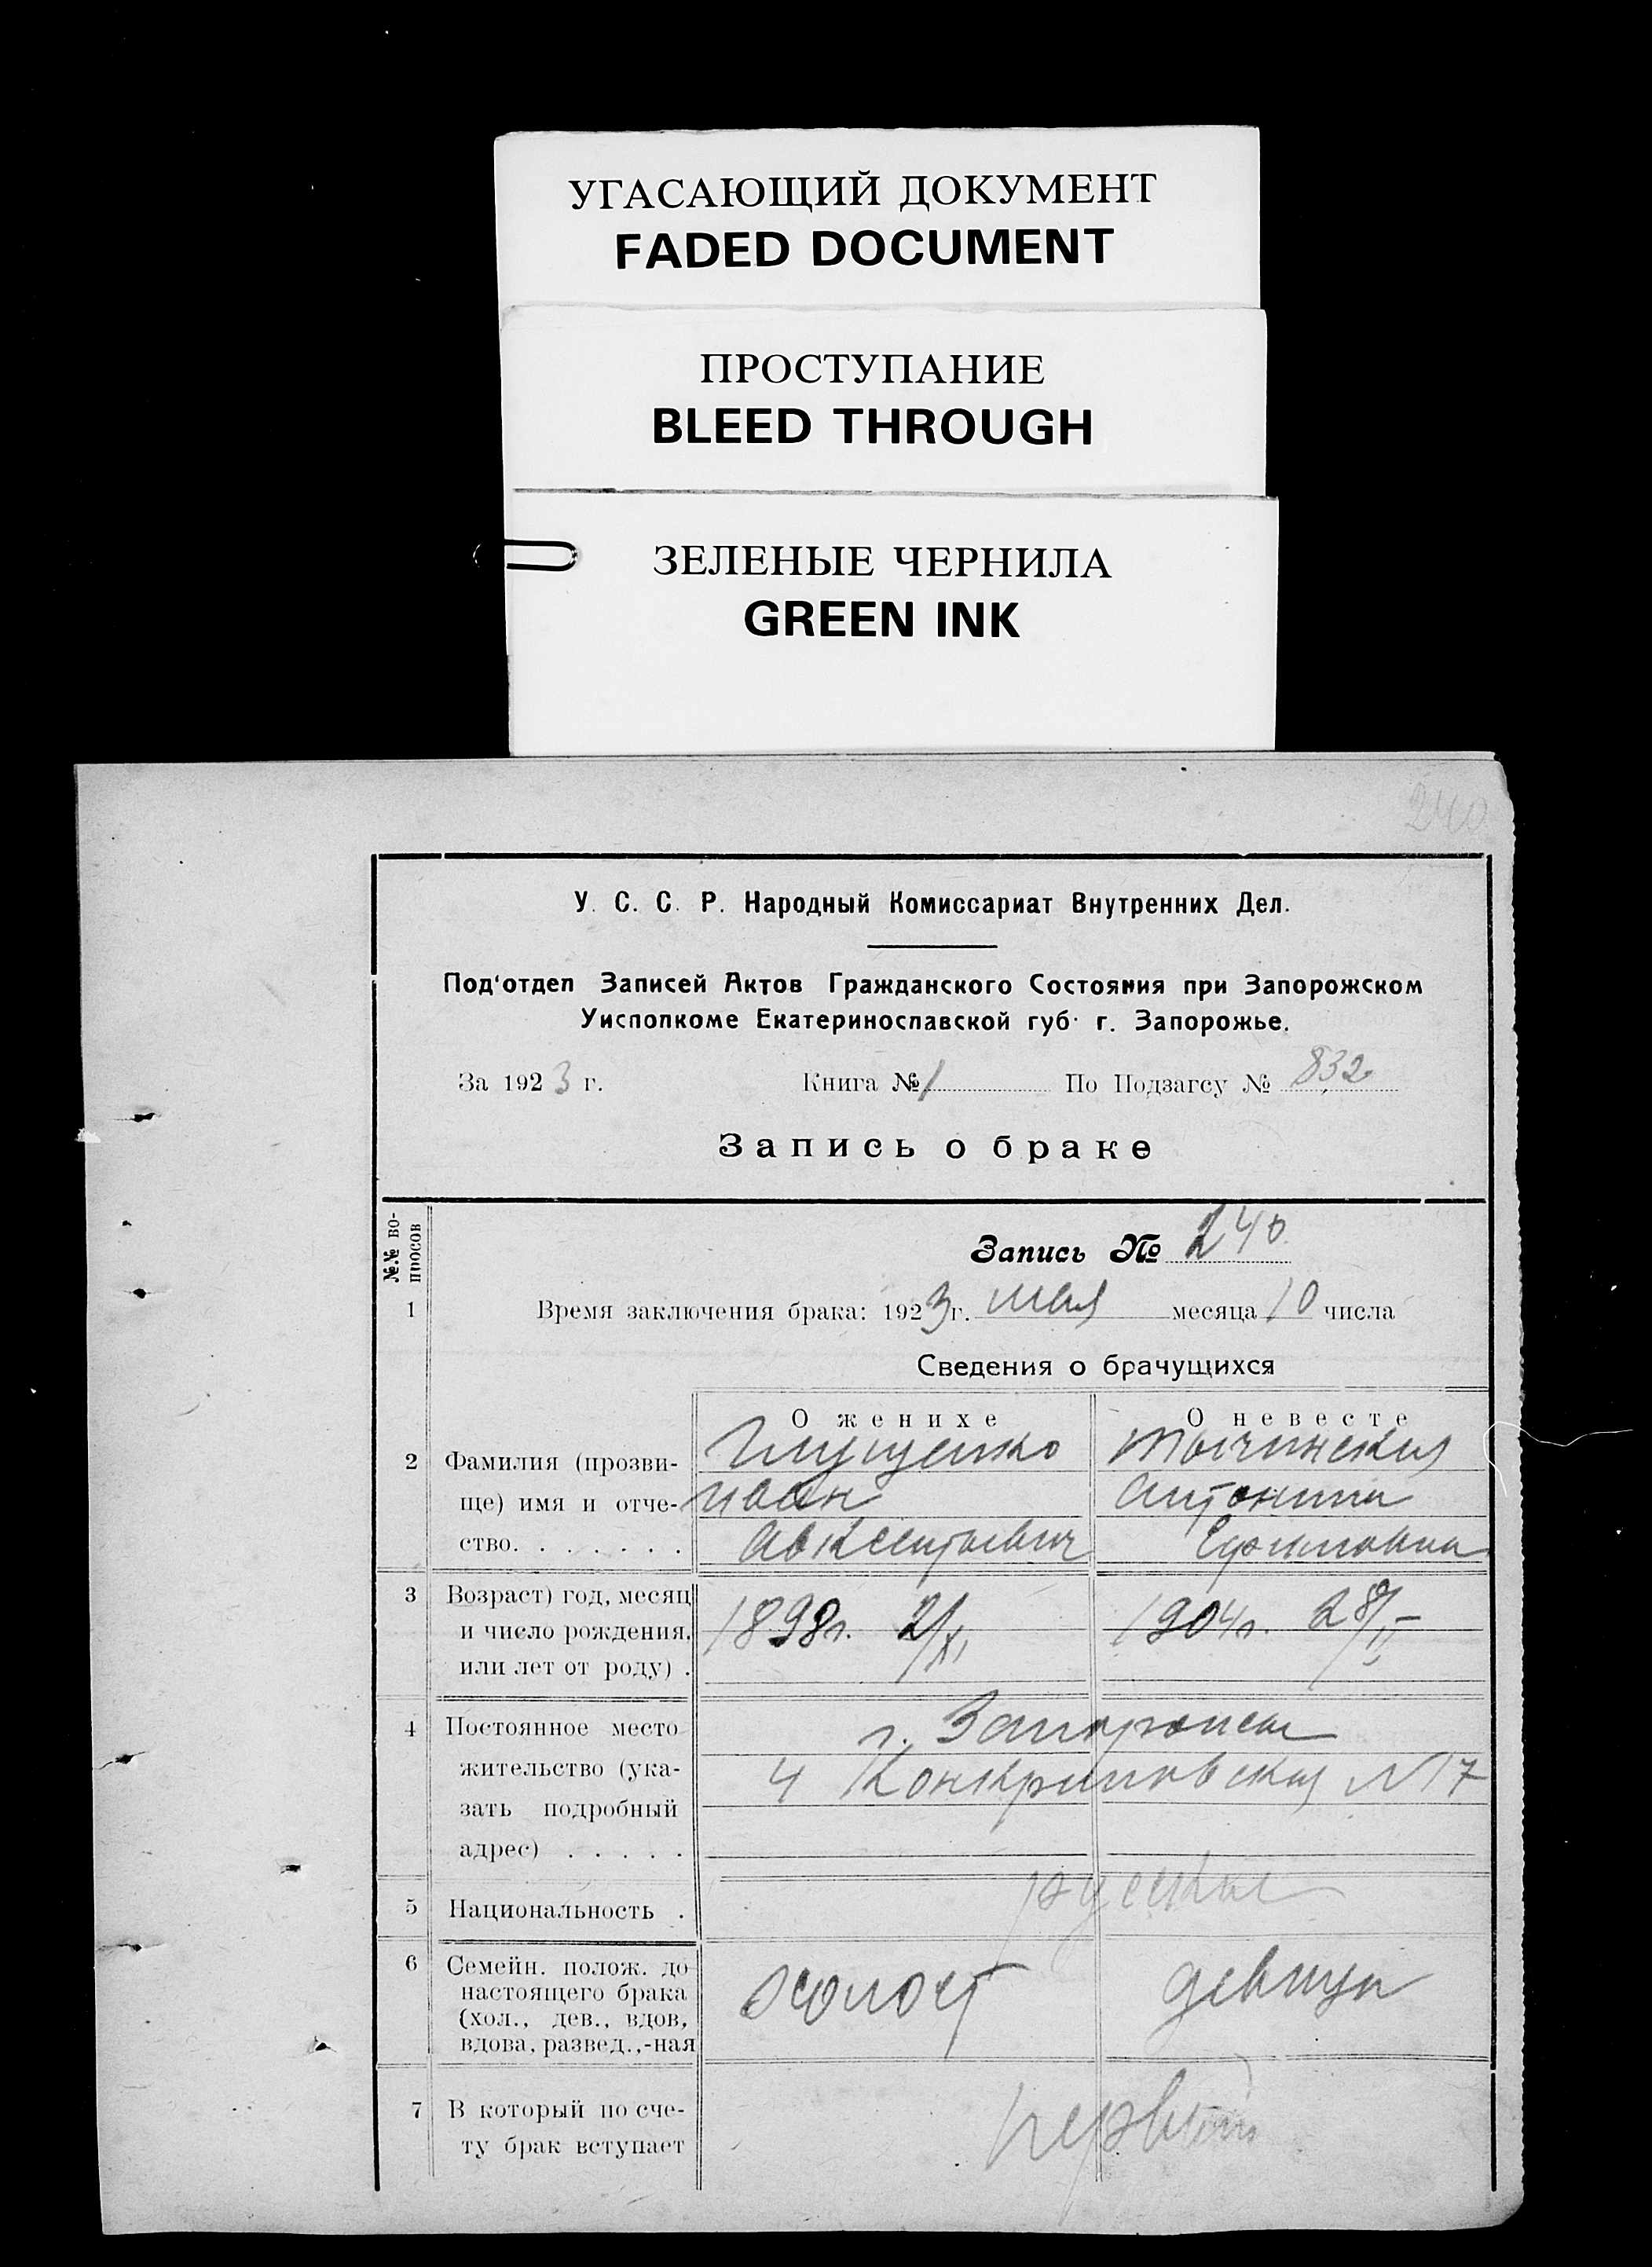 УГАСАЮЩИЙ ДОКУМЕНТ
FADED DOCUMENT
ПРОСТУПАНИЕ
BLEED THROUGH
ЗЕЛЕНЫЕ ЧЕРНИЛА
GREEN INK
240
У. С. С. Р. Народный Комиссариат Внутренних Дел.
Под'отдел Записей Актов Гражданского Состояния при Запорожском
Уисполкоме Екатеринославской губ. г. Запорожье.
За 1923 г. Книга № 1 По Подзагсу № 832
Запись о браке
№.№ во-
просов
Запись № 240
1 Время заключения брака: 1923г. мая месяца 10 числа
Сведения о брачущихся
О женихе О невесте
2 Фамилия (прозви- Глущенко Тычинская
ще) имя и отче- Иван Антонина
ство. . . . . . . Авксентьевич Ефимовна
3 Возраст) год, месяц
и число рождения, 1898г. 2/XI 1904г. 28/II
или лет от роду) .
4 Постоянное место г. Запорожье
жительство (ука- 4 №17
зать подробный
адрес) . . . . .
5 Национальность . русские
6 Семейн. полож. до
настоящего брака холост девица
(хол., дев., вдов,
вдова, развед.,-ная
7 В который по сче- первый
ту брак вступает